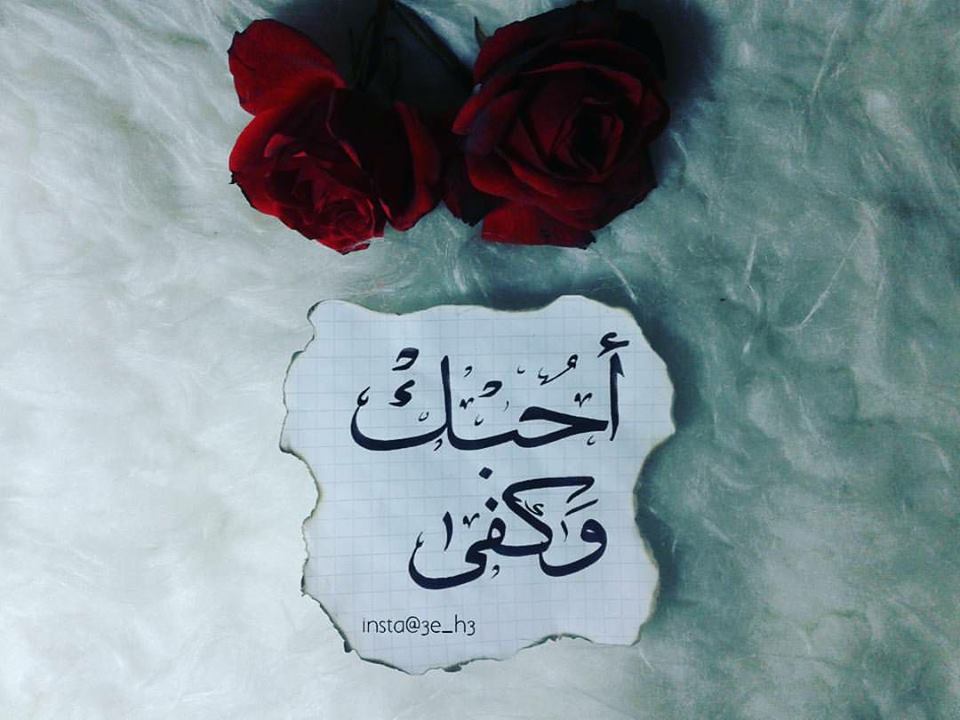 أُحبْكْ
وَكفىٰ
insta@3e_h3